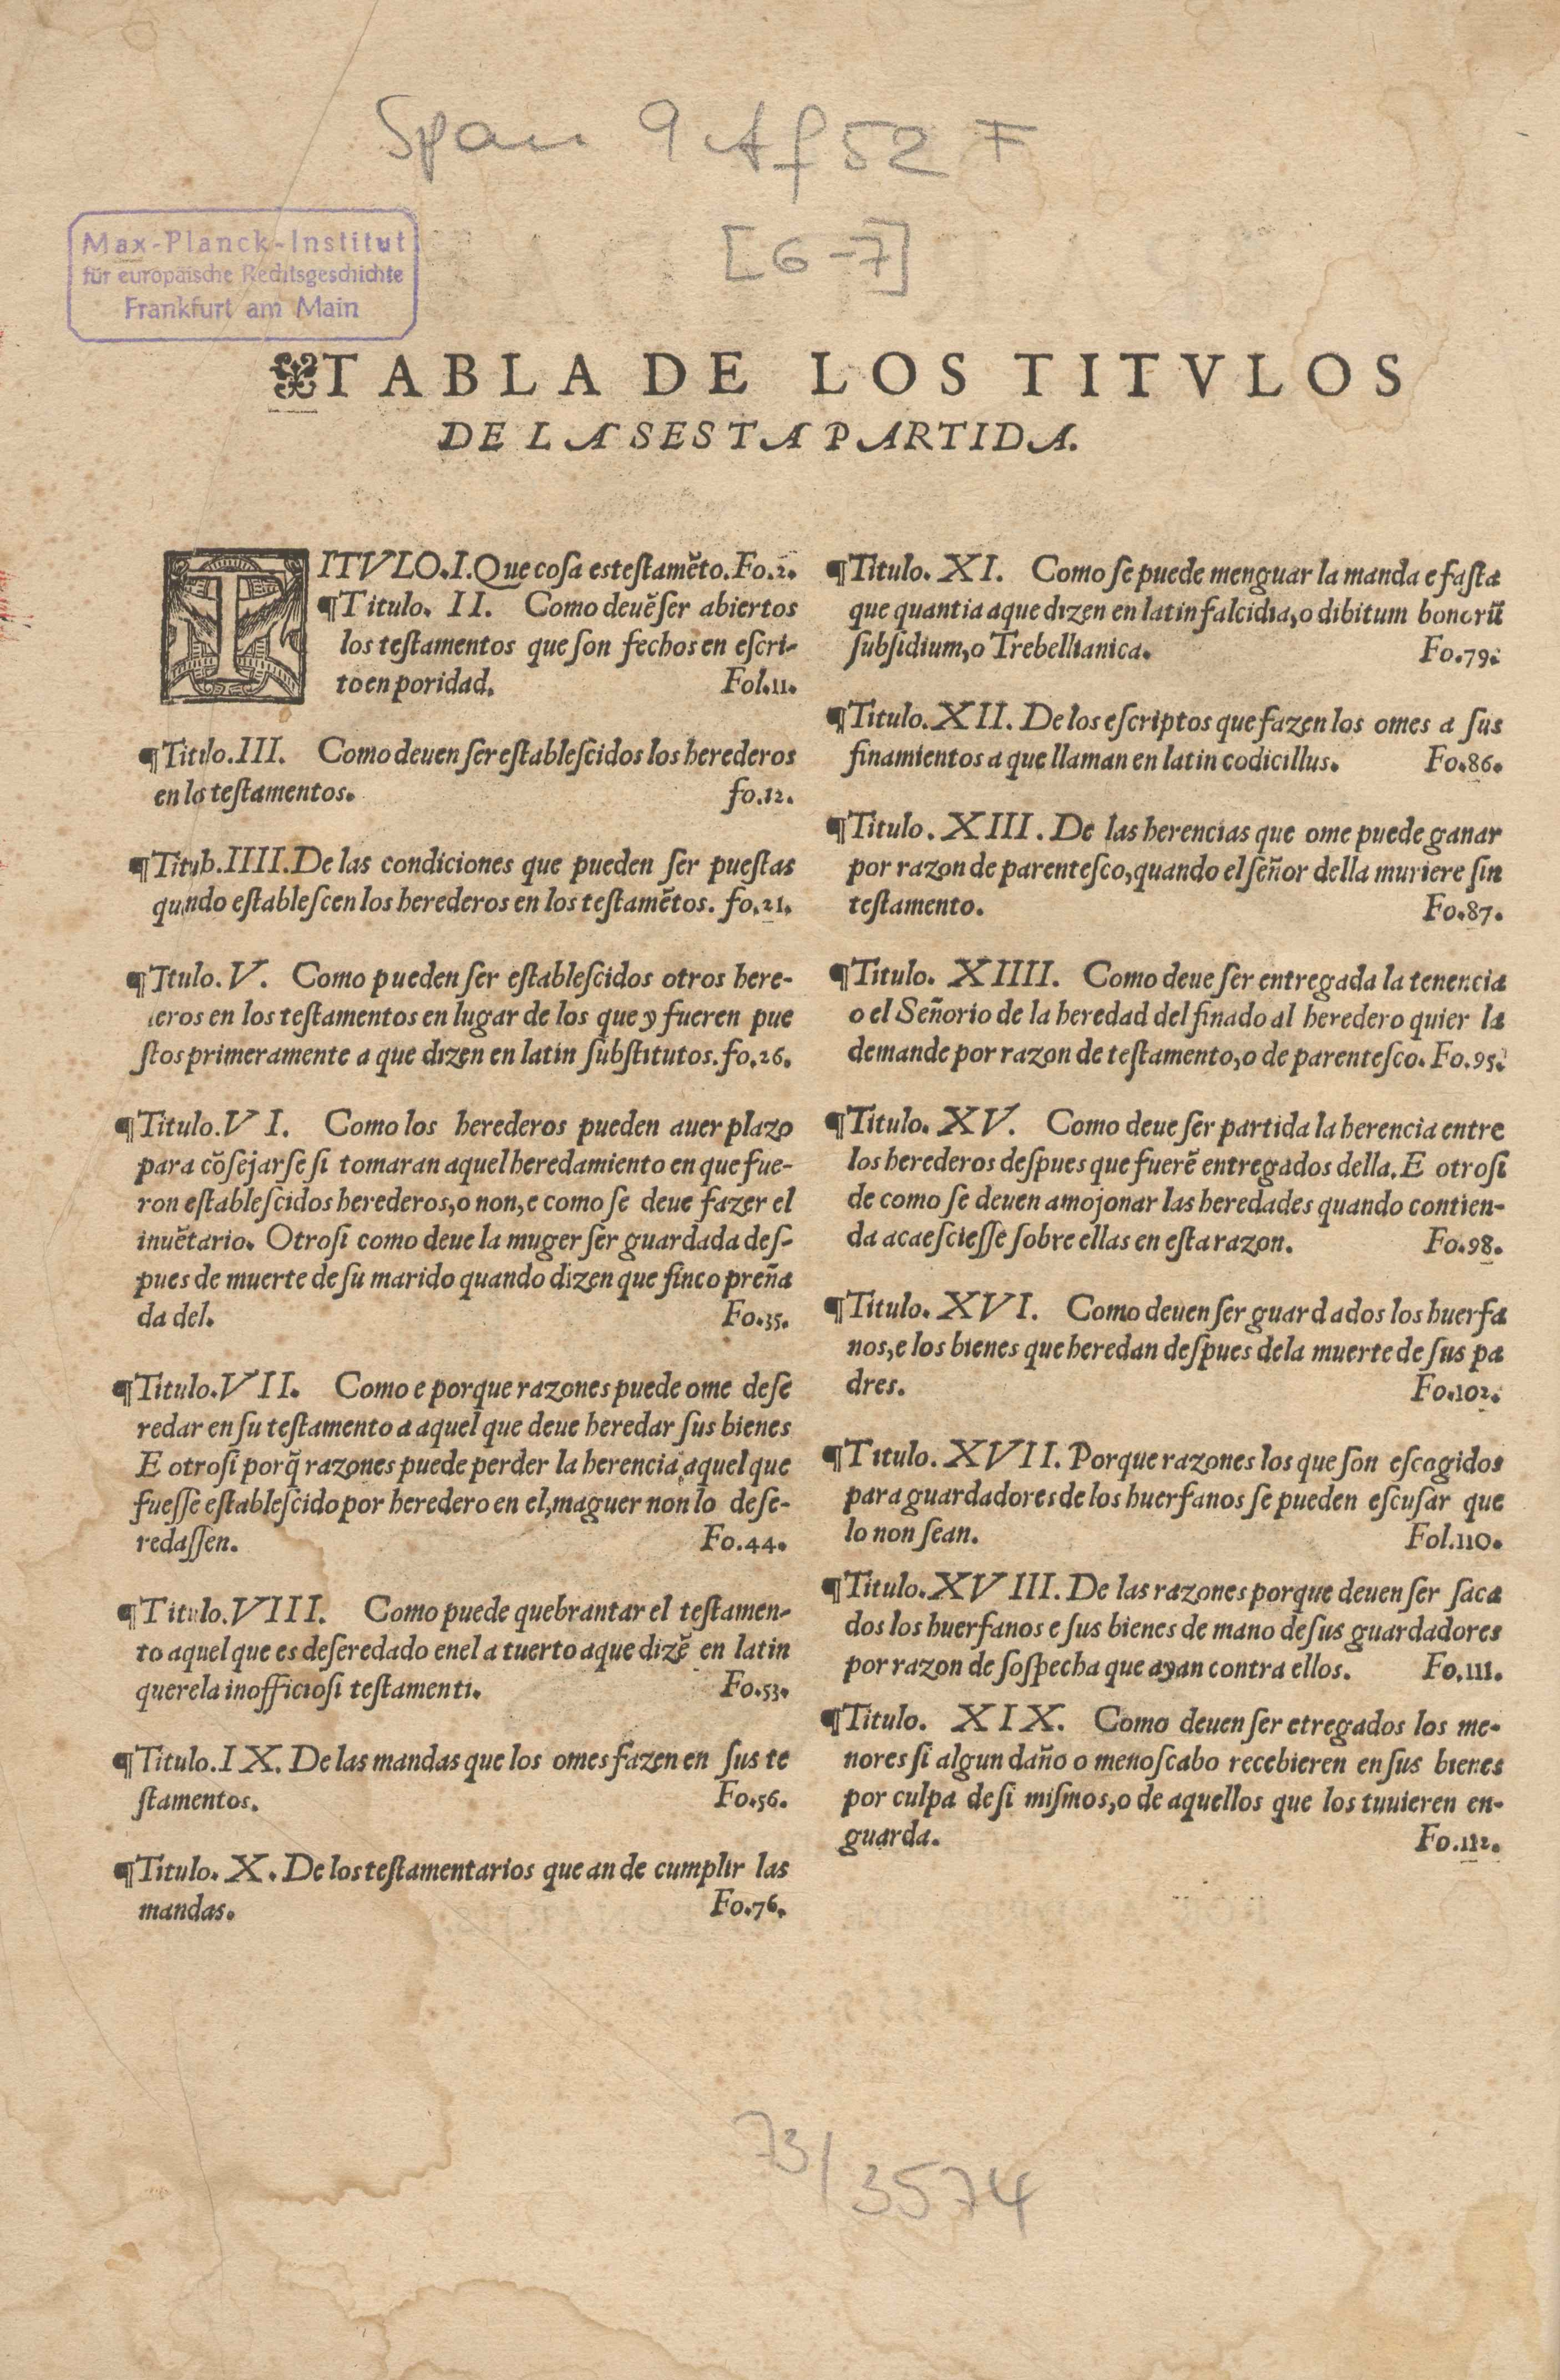 Span 9 Af 52 F
[6-7]
Max-Planck-Institut
für europäische Rechtsgeschichte
Frankfurt am Main
TABLA DE LOS TITVLOS
DE LA SESTA PARTIDA.
TITVLO.I.Que coſa es teſtamẽto.Fo.2.
¶Titulo. II. Como deuẽ ſer abiertos
los teſtamentos que ſon fechos en eſcri-
to en poridad. Fol.11.
¶Titulo.III. Como deuen ſer eſtableſcidos los herederos
en lo teſtamentos. fo.12.
¶Titub.IIII.De las condiciones que pueden ſer pueſtas
qundo eſtableſcen los herederos en los teſtamẽtos. fo.21.
¶Ttulo.V. Como pueden ſer eſtableſcidos otros here-
eros en los teſtamentos en lugar de los que y fueren pue
ſtos primeramente a que dizen en latin ſubſtitutos.fo.26.
¶Titulo.VI. Como los herederos pueden auer plazo
para cõſejarſe ſi tomaran aquel heredamiento en que fue-
ron eſtableſcidos herederos,o non,e como ſe deue fazer el
inuẽtario. Otroſi como deue la muger ſer guardada deſ-
pues de muerte de ſu marido quando dizen que finco preña
da del. Fo.35.
¶Titulo.VII. Como e porque razones puede ome deſe
redar en ſu teſtamento a aquel que deue heredar ſus bienes
E otroſi porq̃ razones puede perder la herencia aquel que
fueſſe eſtableſcido por heredero en el,maguer non lo deſe-
redaſſen. Fo.44.
¶Titulo.VIII. Como puede quebrantar el teſtamen-
to aquel que es deſeredado enel a tuerto aque dizẽ en latin
querela inofficioſi teſtamenti. Fo.53.
¶Titulo.IX. De las mandas que los omes fazen en ſus te
ſtamentos. Fo.56.
¶Titulo.X. De los teſtamentarios que an de cumplir las
mandas. Fo.76.
¶Titulo. XI. Como ſe puede menguar la manda e faſta
que quantia aque dizen en latin falcidia,o dibitum bonorũ
ſubſidium,o Trebellianica. Fo.79.
¶Titulo.XII. De los eſcriptos que fazen los omes a ſus
finamientos a que llaman en latin codicillus. Fo.86.
¶Titulo.XIII. De las herencias que ome puede ganar
por razon de parenteſco,quando el ſeñor della muriere ſin
teſtamento. Fo.87.
¶Titulo. XIIII. Como deue ſer entregada la tenencia
o el Señorio de la heredad del finado al heredero quier la
demande por razon de teſtamento,o de parenteſco. Fo.95.
¶Titulo. XV. Como deue ſer partida la herencia entre
los herederos deſpues que fuerẽ entregados della. E otroſi
de como ſe deuen amojonar las heredades quando contien-
da acaeſcieſſe ſobre ellas en eſta razon. Fo.98.
¶Titulo. XVI. Como deuen ſer guardados los huerfa
nos,e los bienes que heredan deſpues dela muerte de ſus pa
dres. Fo.102.
¶Titulo. XVII. Porque razones los que ſon eſcogidos
para guardadores de los huerfanos ſe pueden eſcuſar que
lo non ſean. Fol.110.
¶Titulo.XVIII. De las razones porque deuen ſer ſaca
dos los huerfanos e ſus bienes de mano de ſus guardadores
por razon de ſoſpecha que ayan contra ellos. Fo.111.
¶Titulo. XIX. Como deuen ſer etregados los me-
nores ſi algun daño o menoſcabo recebieren en ſus bienes
por culpa de ſi miſmos,o de aquellos que los tuuieren en-
guarda. Fo.112.
73/3574